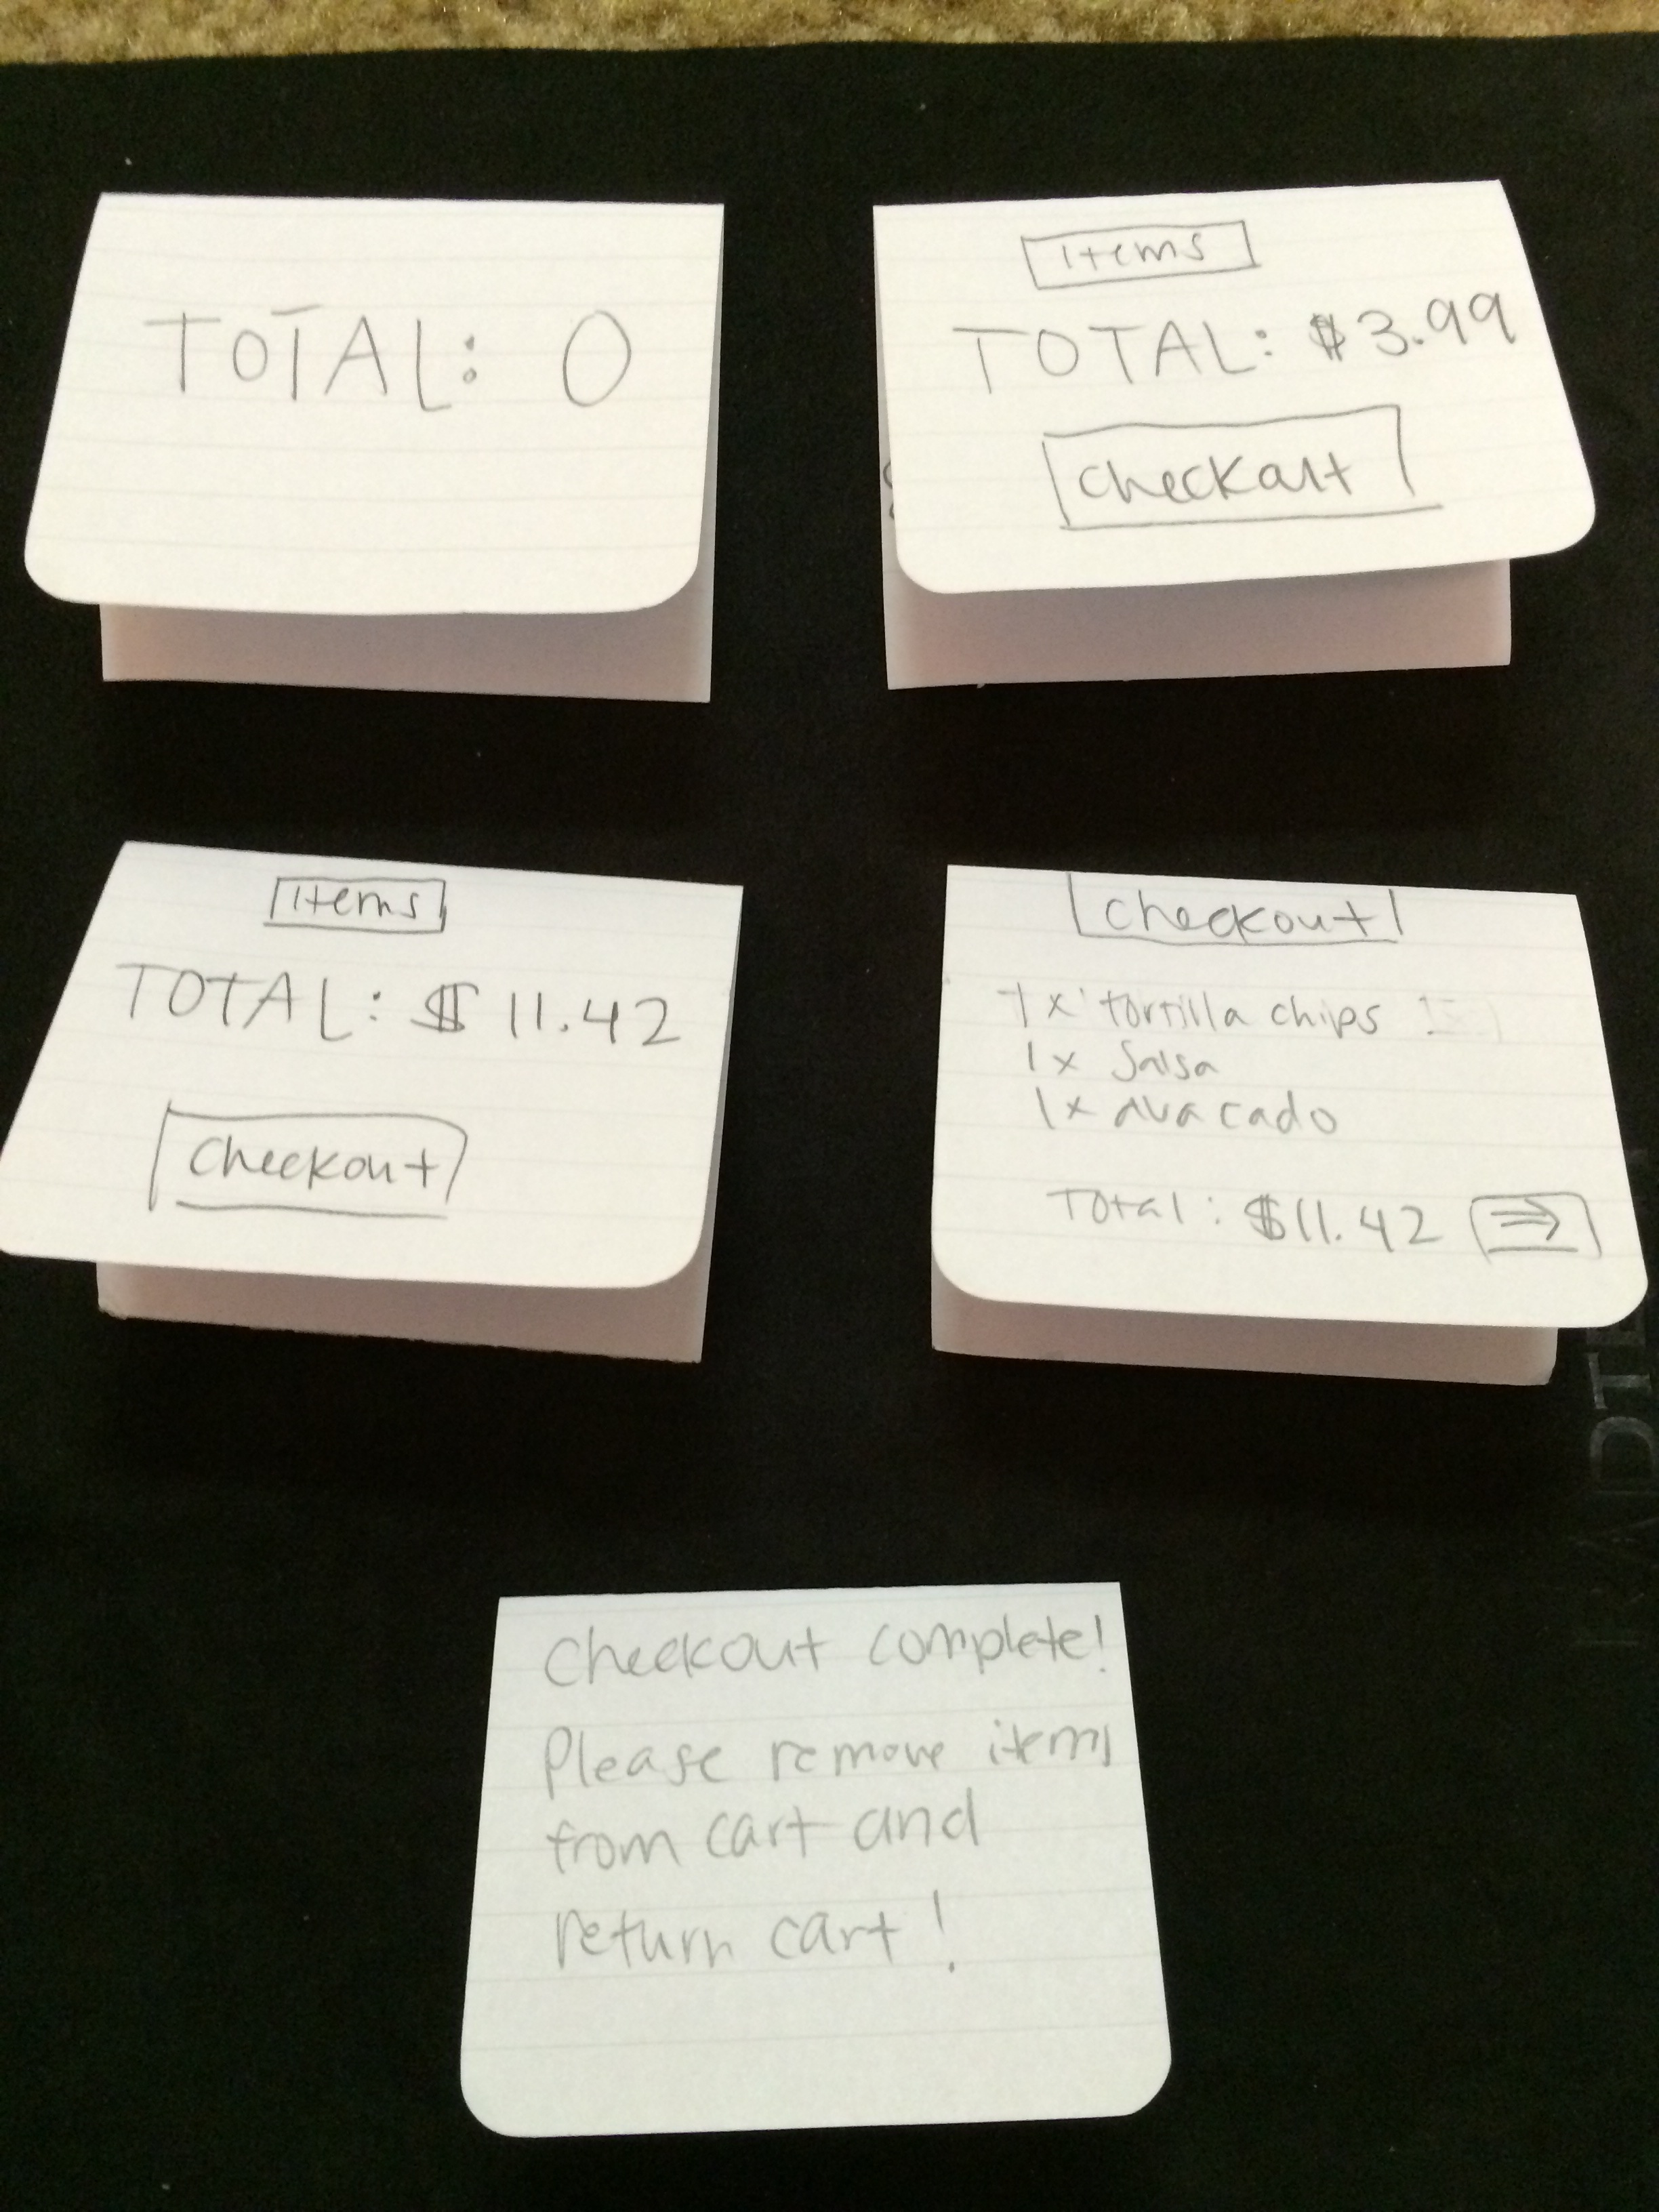 TOTAL: 0
Items
TOTAL: $3.99
Checkout
Items
TOTAL: $11.42
Checkout
Checkout
1x tortilla chips
1x Salsa
1x avacado
Total: $11.42 ⇒
Checkout complete!
Please remove items
from cart and
return cart!